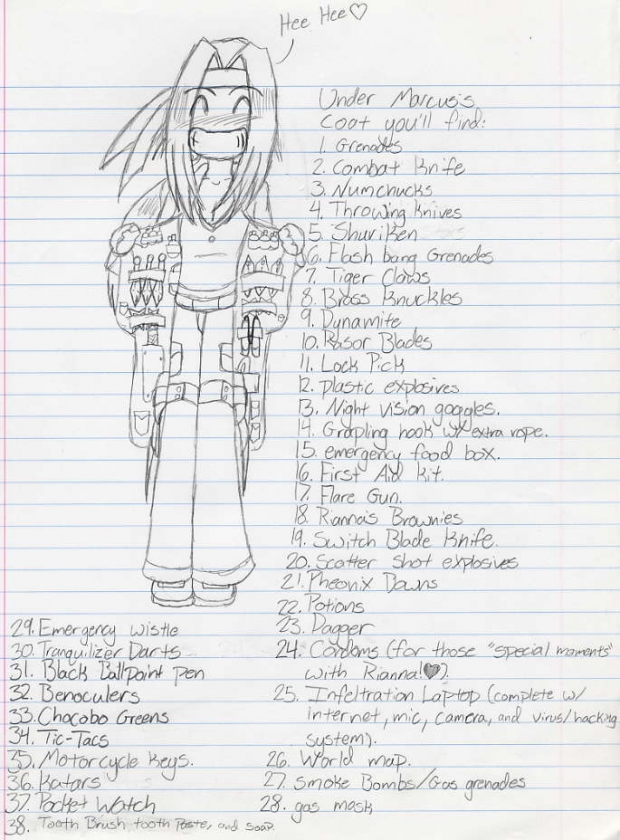 Hee Hee♡
Under Marcus's
Coat you'll find:
1. Grenades
2. Combat Knife
3. Numchucks
4. Throwing Knives
5. Shuriken
6. Flash bang Grenades
7. Tiger Claws
8. Brass Knuckles
9. Dynamite
10. Rasor Blades
11. Lock Pick
12. plastic explosives
13. Night vision goggles.
14. Grapling hook w/ extra rope.
15. emergency food box.
16. First Aid kit.
17. Flare Gun.
18. Rianna's Brownies
19. Switch Blade Knife.
20. Scatter Shot explosives
21. Pheonix Downs
22. Potions
23. Dagger
24. Condoms (for those "special moments"
with Rianna!♥).
25. Infeltration Laptop (complete w/
internet, mic, camera, and virus/hacking
system).
26. World map.
27. Smoke Bombs/Gas grenades
28. gas mask
29. Emergency wistle
30. Tranquilizer Darts
31. Black Ballpoint pen
32. Benoculers
33. Chocobo Greens
34. Tic-Tacs
35. Motorcycle Keys.
36. Katars
37. Pocket Watch
38. Tooth Brush tooth paste, and soap.